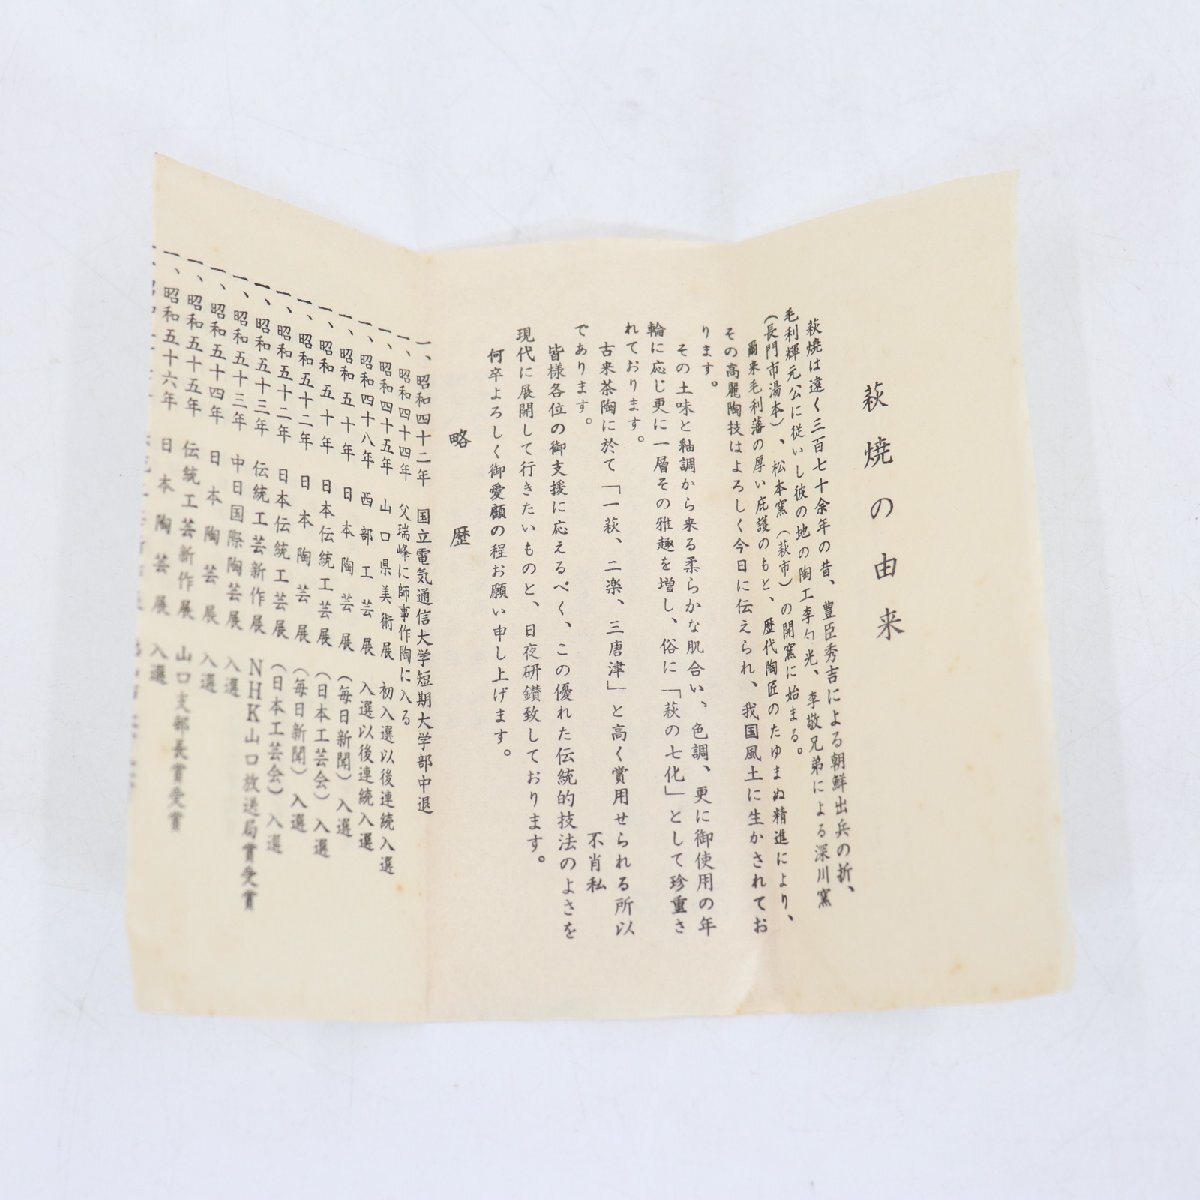 萩焼の由来
萩焼は遠く三百七十余年の昔、豊臣秀吉による朝鮮出兵の折、
毛利輝元公に従いし彼の地の陶工李勺光、李敬兄弟による深川窯
(長門市湯本)、松本窯(萩市)の開窯に始まる。
爾来毛利藩の厚い庇護のもと、歴代陶匠のたゆまぬ精進により、
その高麗陶技はよろしく今日に伝えられ、我国風土に生かされてお
ります。
その土味と釉調から来る柔らかな肌合い、色調、更に御使用の年
輪に応じ更に一層その雅趣を増し、俗に「萩の七化」として珍重さ
れております。
古来茶陶に於て「一萩、二楽、三唐津」と高く賞用せられる所以
であります。
不肖私
皆様各位の御支援に応えるべく、この優れた伝統的技法のよさを
現代に展開して行きたいものと、日夜研鑽致しております。
何卒よろしく御愛顧の程お願い申し上げます。
略歴
一、昭和四十二年 国立電気通信大学短期大学部中退
一、昭和四十四年 父瑞峰に師事作陶に入る
一、昭和四十五年 山口県美術展 初入選以後連続入選
一、昭和四十八年 西部工芸展 入選以後連続入選
一、昭和五十年 日本陶芸展 (毎日新聞)入選
一、昭和五十年 日本伝統工芸展 (日本工芸会)入選
一、昭和五十二年 日本陶芸展 (毎日新聞)入選
一、昭和五十二年 日本伝統工芸展 (日本工芸会)入選
一、昭和五十三年 伝統工芸新作展 NHK山口放送局賞受賞
一、昭和五十三年 中日国際陶芸展 入選
一、昭和五十四年 日本陶芸展 入選
一、昭和五十五年 伝統工芸新作展 山口支部長賞受賞
一、昭和五十六年 日本陶芸展 入選